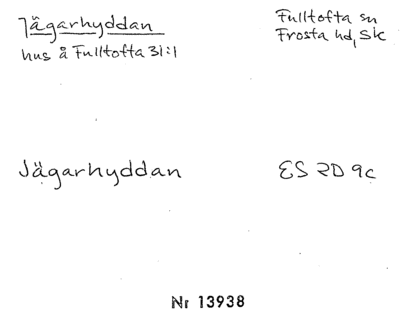 Jägarhyddan
hus å Fulltofta 31:1
Fulltofta sn
Frosta hd, Sk
Jägarhyddan
ES 2D 9c
Nr 13938